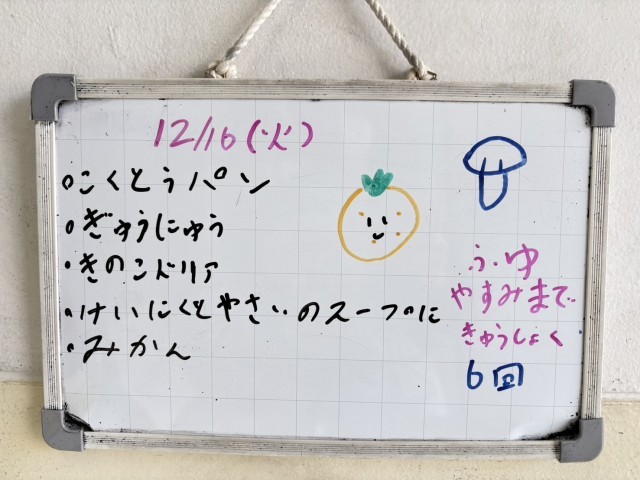 12/16(火)
・こくとうパン
・ぎゅうにゅう
・きのこドリア
・けいにくとやさいのスープに
・みかん
ふゆ
やすみまで
きゅうしょく
6回